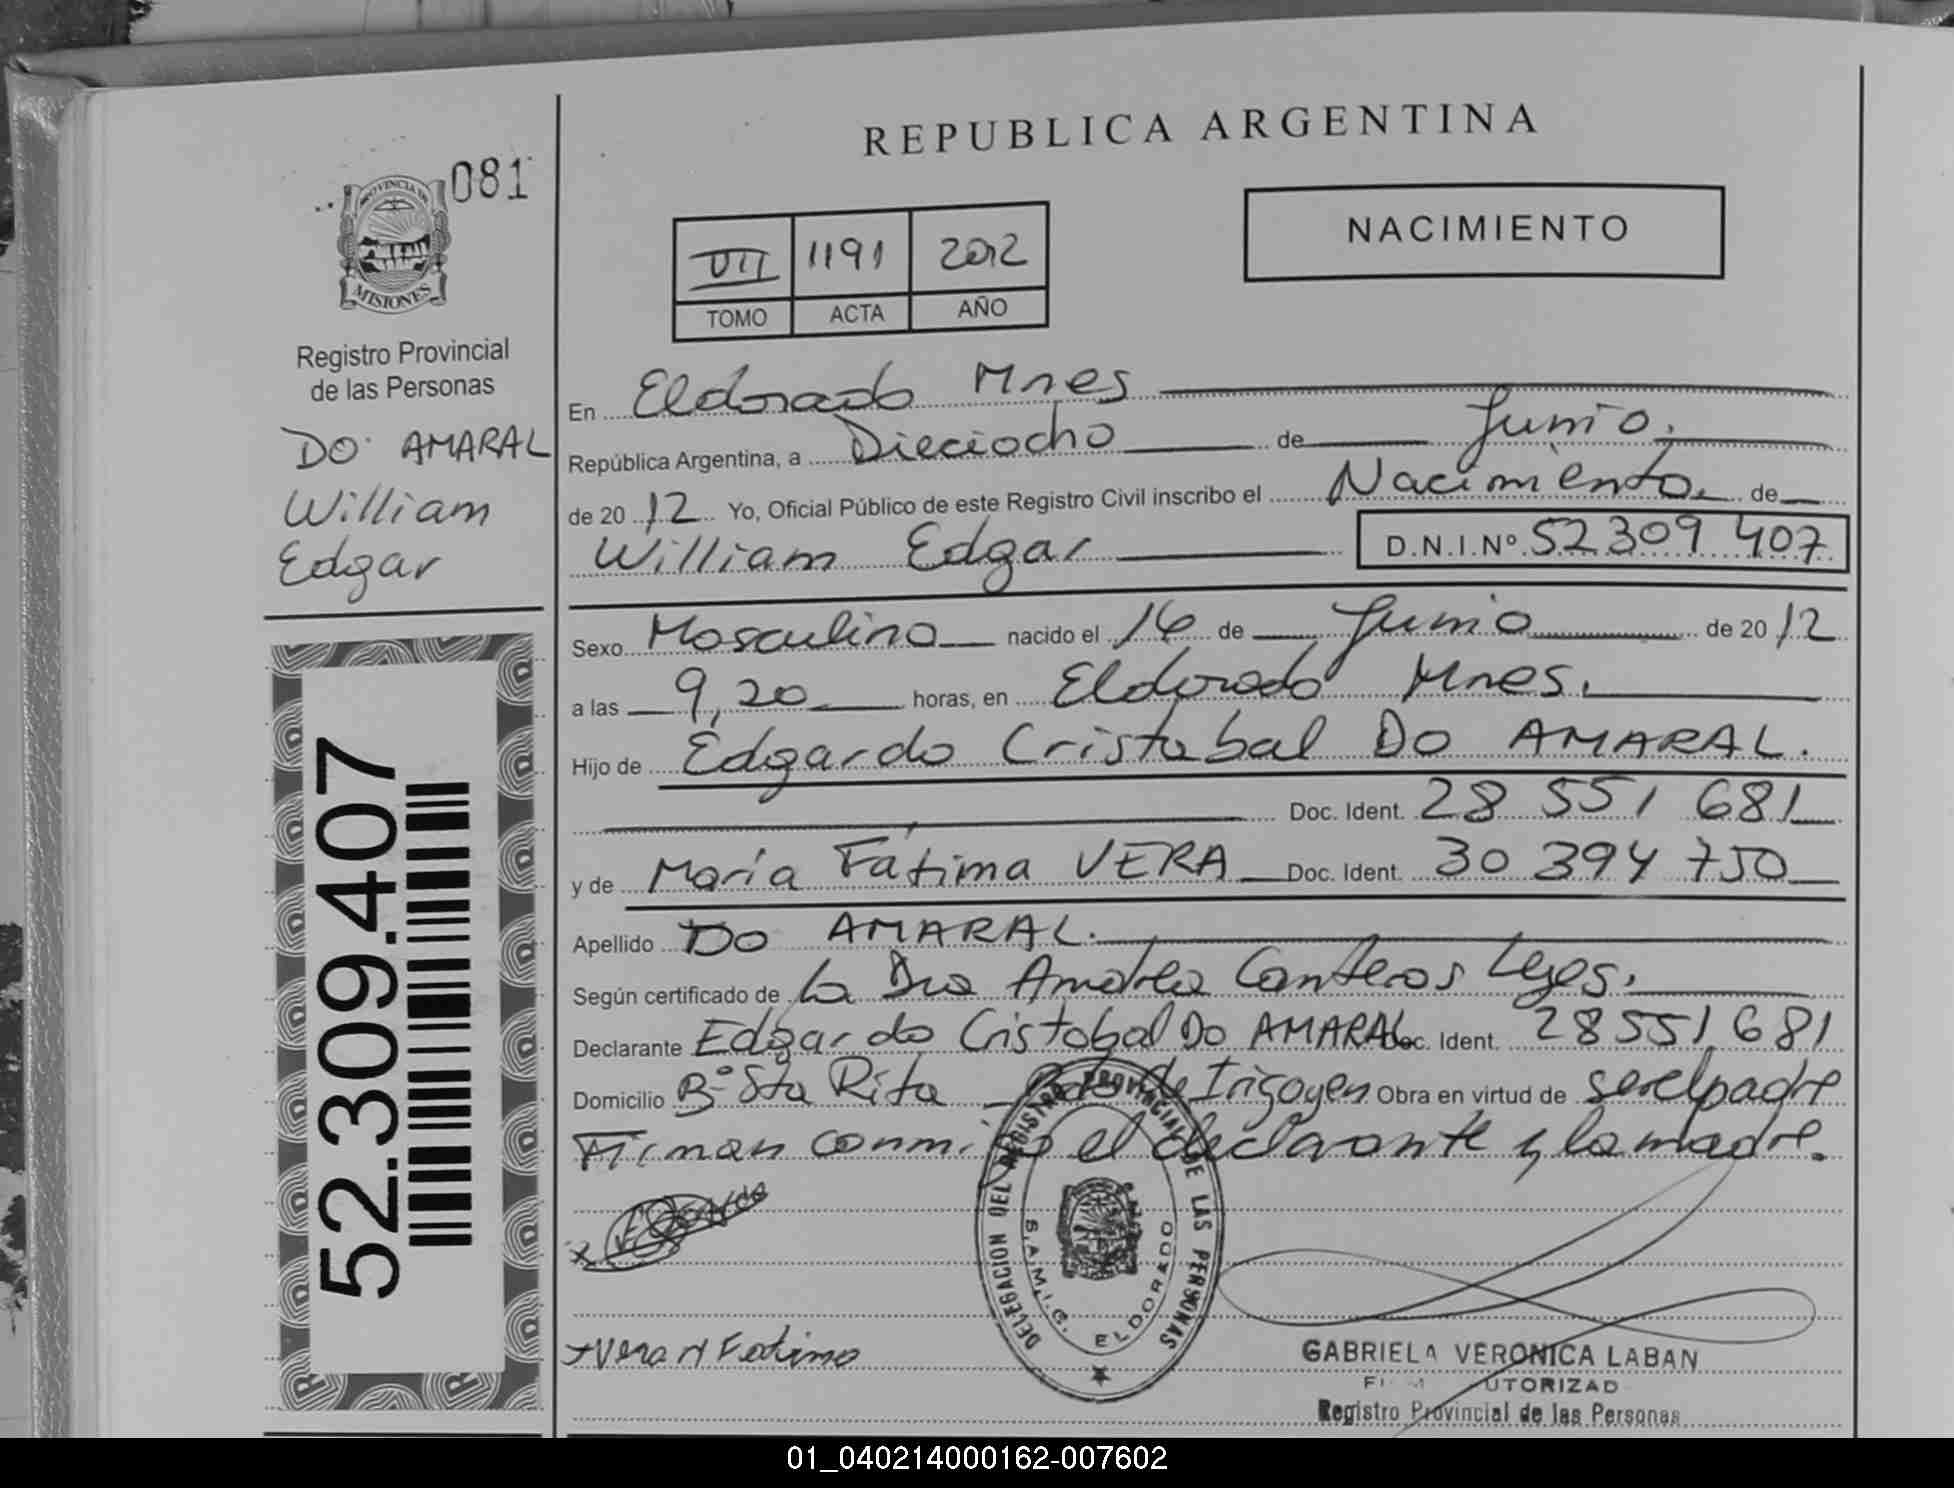 081
PROVINCIA DE
MISIONES
Registro Provincial
de las Personas
DO AMARAL
William
Edgar
52.309.407
REPUBLICA ARGENTINA
NACIMIENTO
VII 1191 2012
TOMO ACTA AÑO
En Eldorado Mnes
República Argentina, a Dieciocho de Junio.
de 2012 Yo, Oficial Público de este Registro Civil inscribo el Nacimiento de
William Edgar D.N.I.Nº 52 309 407
Sexo Masculino nacido el 16 de Junio de 2012
a las 9,20 horas, en Eldorado Mnes.
Hijo de Edgardo Cristobal DO AMARAL.
Doc. Ident. 28 551 681
y de María Fátima VERA Doc. Ident. 30 394 750
Apellido DO AMARAL.
Según certificado de la Dra Canteros
Declarante Edgardo Cristobal DO AMARAL Doc. Ident. 28 551 681
Domicilio Bº Sta Rita de Irigoyen Obra en virtud de ser el padre
Firman conmigo el declarante y la madre.
DELEGACION DEL REGISTRO PROVINCIAL DE LAS PERSONAS
ELDORADO
x Vera M Fatima
GABRIELA VERONICA LABAN
Registro Provincial de las Personas
01_040214000162-007602